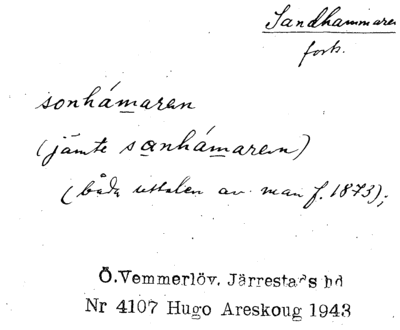 Sandhammaren
forts.
sonhámaren
(jämte sanhámaren)
(båda uttalen av man f. 1873);
Ö.Vemmerlöv. Järrestads hd
Nr 4107 Hugo Areskoug 1943